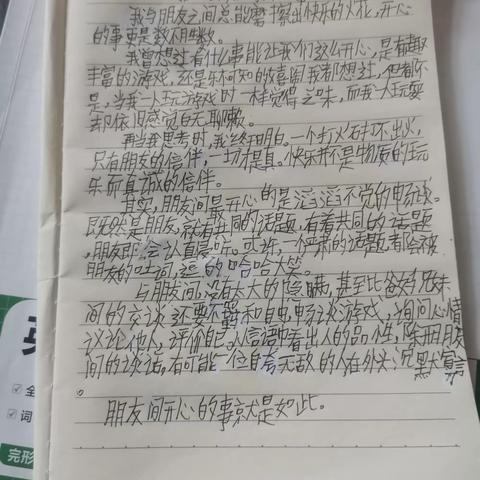 我与朋友之间总能磨擦出快乐的火花,开心
的事更是数不胜数。
我曾想过有什么事能让我们这么开心,是有趣
丰富的游戏,还是不可知的喜闻我都想过,但都不
是,当我一人玩游戏时一样觉得乏味,而我一人玩耍
却依旧感觉百无聊赖。
再当我思考时,我终于明白。一个打火石打不出火,
只有朋友的陪伴,一切才是真。快乐并不是物质的玩
乐而真诚的陪伴。
其实,朋友间最开心的是滔滔不觉的畅谈。
既然是朋友,就有共同的话题,有着共同的话题
,朋友即会认真倾听。或许,一个严肃的话题都会被
朋友的吐词,逗的哈哈大笑。
与朋友间,没有太大的隐瞒,甚至比爸妈兄妹
间的交谈还要不留和自由,畅谈游戏,询问心情
议论他人,评价自己,从言语中看出人的品性,除开朋友
间的谈话,有可能一位自夸无敌的人在外头,沉默寡言
。
朋友间开心的事就是如此。
英
全
词
完形